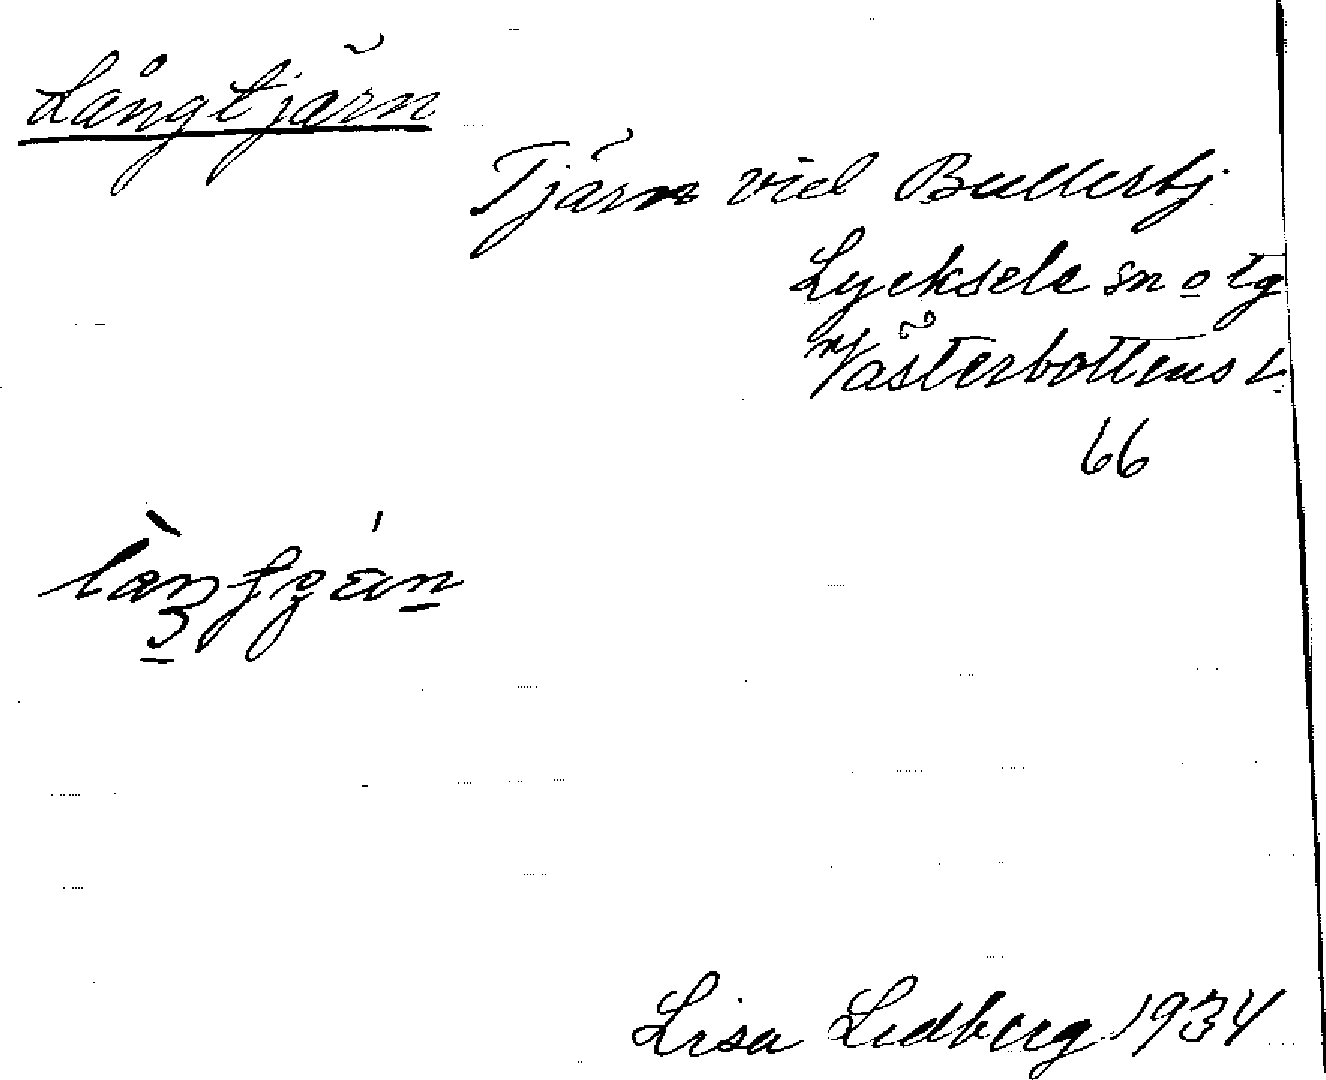 Långtjärn
Tjärn vid Bullerbj.
Lycksele sn o tg
Västerbottens L.
66
Lisa Lidberg 1934